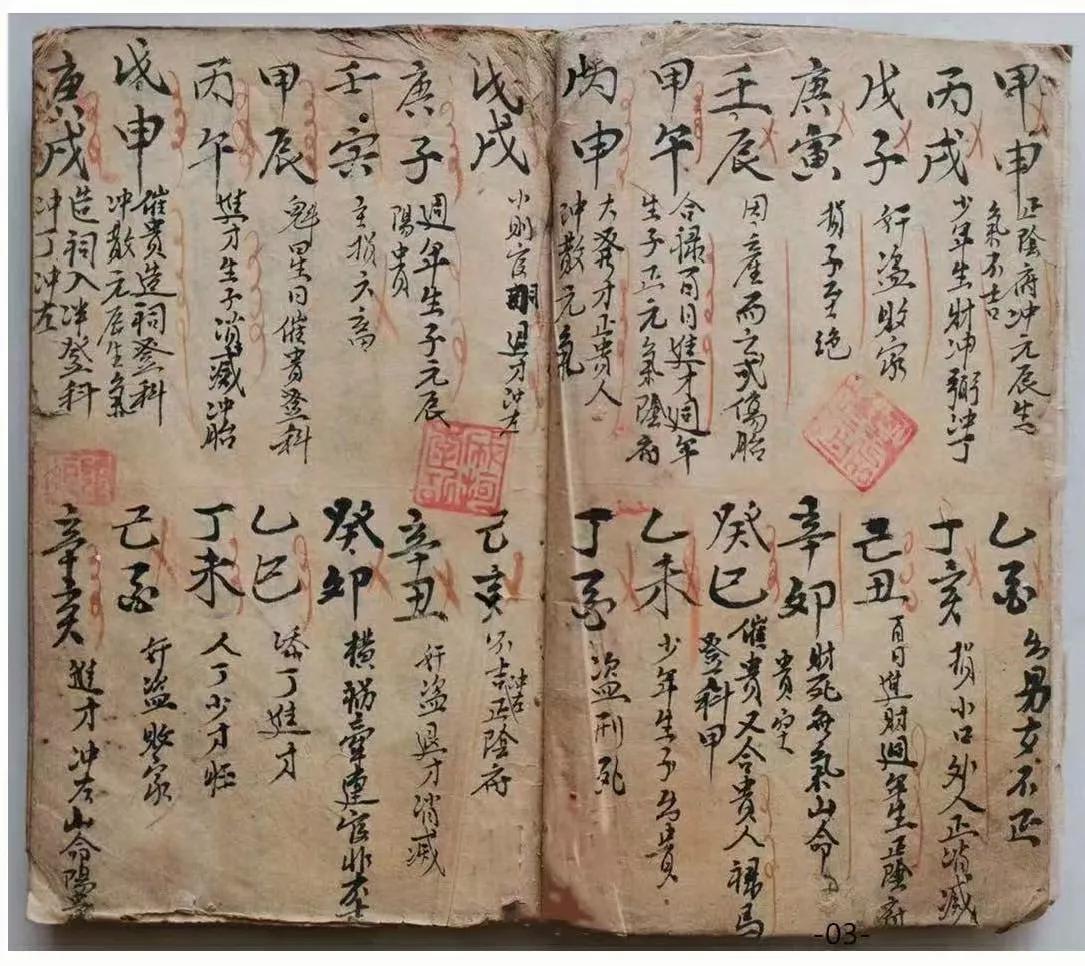 甲申
正陰府冲元辰生
氣不吉
丙戌
少年生財冲弼冲丁
戊子
奸盗败家
庚寅
损子至绝
壬辰
因產而亡或傷胎
甲午
合禄百日進才週年
生子正元氣陰府
丙申
大発才正貴人
冲散元氣
乙酉
出男女不正
丁亥
損小口外人正消滅
己丑
百日進財週年生正陰府
辛卯
財死無氣山命
貴空
癸巳
催貴又合貴人禄馬
登科甲
乙未
少年生子出貴
丁酉
盗刑死
戊戌
小則官退才冲左
庚子
週年生子元辰
陽貴
壬寅
主损六畜
甲辰
魁星日催貴登科
丙午
進才生子消滅冲胎
戊申
催貴造祠登科
冲散元辰生氣
庚戌
造祠入泮登科
冲丁冲左
己亥
不吉正陰府
冲左
辛丑
奸盗退才消滅
癸卯
横祸牵連官非
乙巳
添丁進才
丁未
人丁少才旺
己酉
奸盗敗家
辛亥
進才冲左山命陽貴
-03-